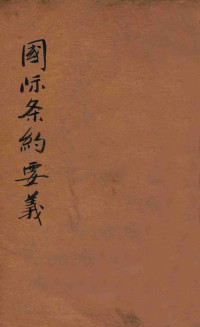 國际条約要義